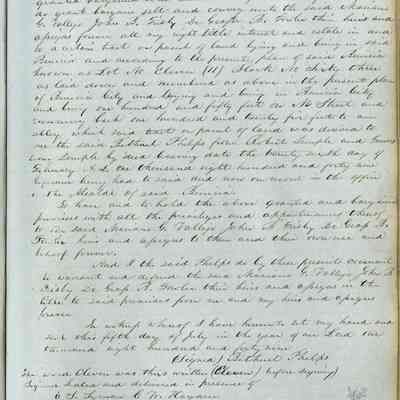 do grant bargain sell and convey unto the said Mariano
G. Vallejo John B. Frisby De Graff A. Foster their heirs and
assigns forever all my right title interest and estate in and
to a certain tract or parcel of land lying and being in said
Benicia and according to the present plan of said Benicia
known as Lot No Eleven (11) Block No thirty three
as laid down and numbered as above in the present plan
of Benicia City and lying and being in Benicia City
and being one hundred and fifty feet on M Street and
running back one hundred and twenty five feet to an
alley which said tract or parcel of land was deeded to
me the said Bethuel Phelps from Robert Semple and Frances
Semple by deed bearing date the twenty sixth day of
February A.D. one thousand eight hundred and forty nine
reference being had to said deed now on record in the office
of the Alcalde of said Benicia
To have and to hold the above granted and bargained
premises with all the privileges and appurtenances thereof
to the said Mariano G. Vallejo John B Frisby De Graff A.
Foster heirs and assigns to them and their own use and
behoof forever.
And I the said Phelps do by these presents covenant
to warrant and defend the said Mariano G. Vallejo John B
Frisby De Graff A. Foster their heirs and assigns in the
title to said premises from me and my heirs and assigns
forever
In witness whereof I have hereunto set my hand and
seal this fifth day of July in the year of our Lord one
thousand eight hundred and forty nine
(Signed) Bethuel Phelps
The word Eleven was thus written (Eleven) before signing)
Signed Sealed and delivered in presence of